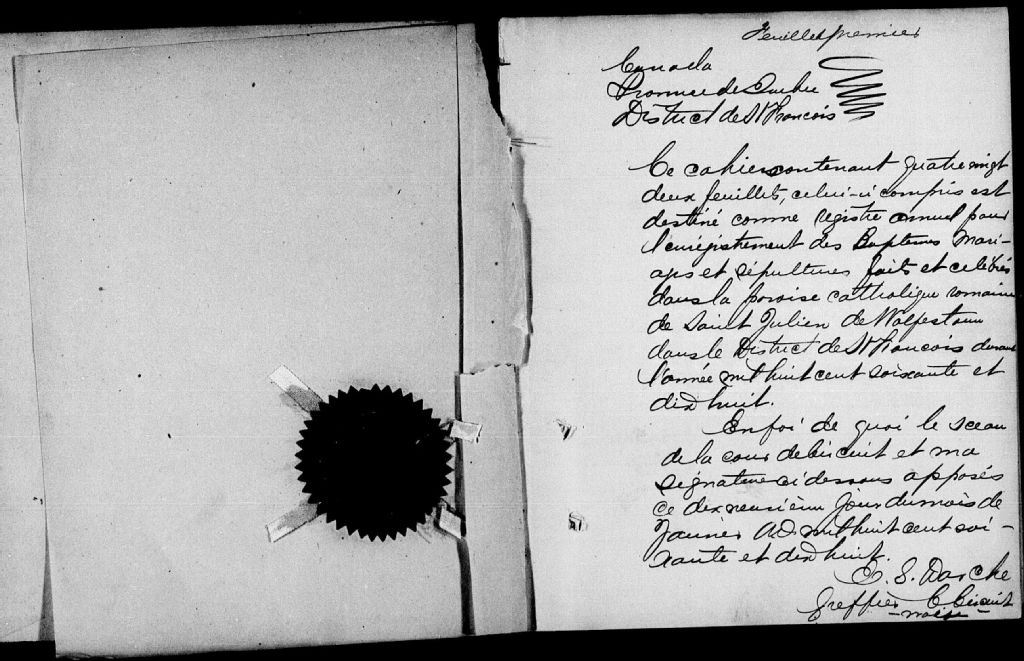 Feuillet premier
Canada
Province de Quebec
District de St François
Ce cahier contenant quatre vingt
deux feuillets, celui-ci compris est
destiné comme registre annuel pour
l'enrégistrement des Baptemes Mari-
ages et sépultures faits et celebrés
dans la paroise catholique romaine
de Saint Julien de Wolfestown
dans le District de St François durant
l'année mil huit cent soixante et
dix huit.
En foi de quoi le sceau
de la cour de Circuit et ma
signature ci dessous apposés
ce dix neuvième jour du mois de
Janvier A.D. mil huit cent soi-
xante et dix huit.
E. S. Darche
Greffier C Circuit